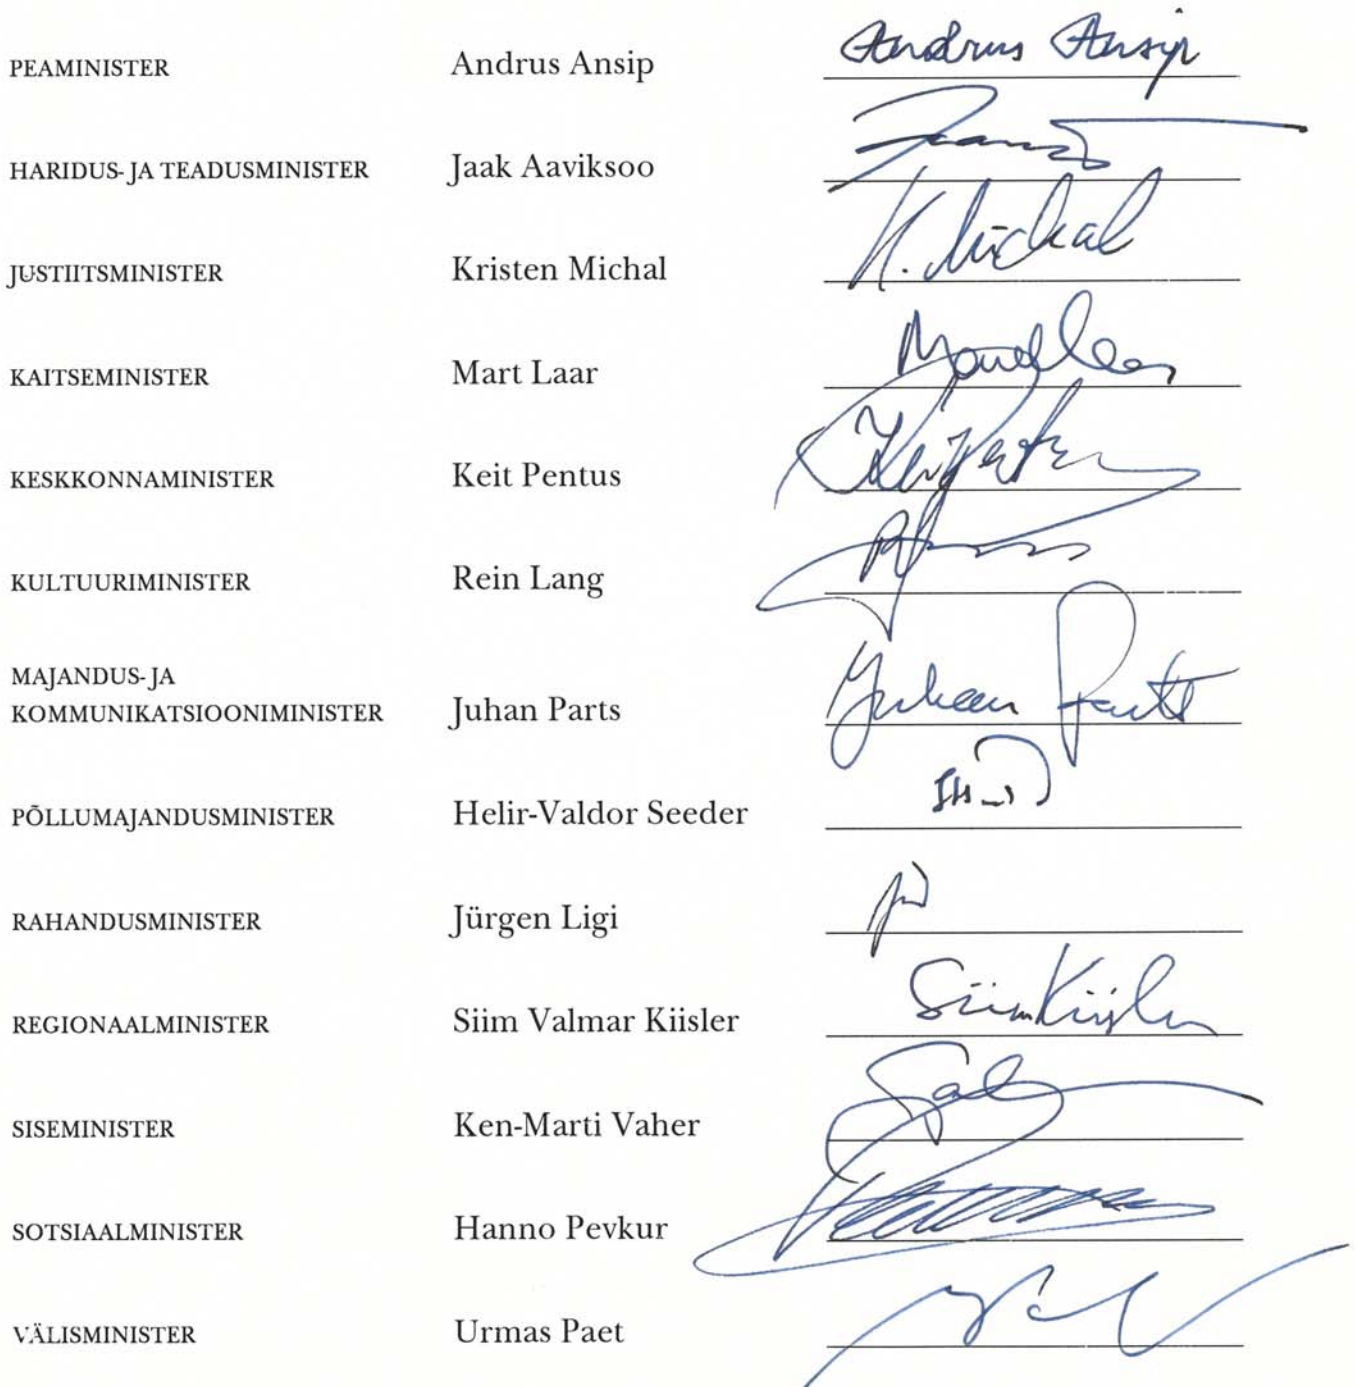 PEAMINISTER Andrus Ansip Andrus Ansip
HARIDUS- JA TEADUSMINISTER Jaak Aaviksoo
JUSTIITSMINISTER Kristen Michal K. Michal
KAITSEMINISTER Mart Laar
KESKKONNAMINISTER Keit Pentus
KULTUURIMINISTER Rein Lang
MAJANDUS- JA
KOMMUNIKATSIOONIMINISTER Juhan Parts Juhan Parts
PÕLLUMAJANDUSMINISTER Helir-Valdor Seeder
RAHANDUSMINISTER Jürgen Ligi
REGIONAALMINISTER Siim Valmar Kiisler Siim Kiisler
SISEMINISTER Ken-Marti Vaher
SOTSIAALMINISTER Hanno Pevkur
VÄLISMINISTER Urmas Paet